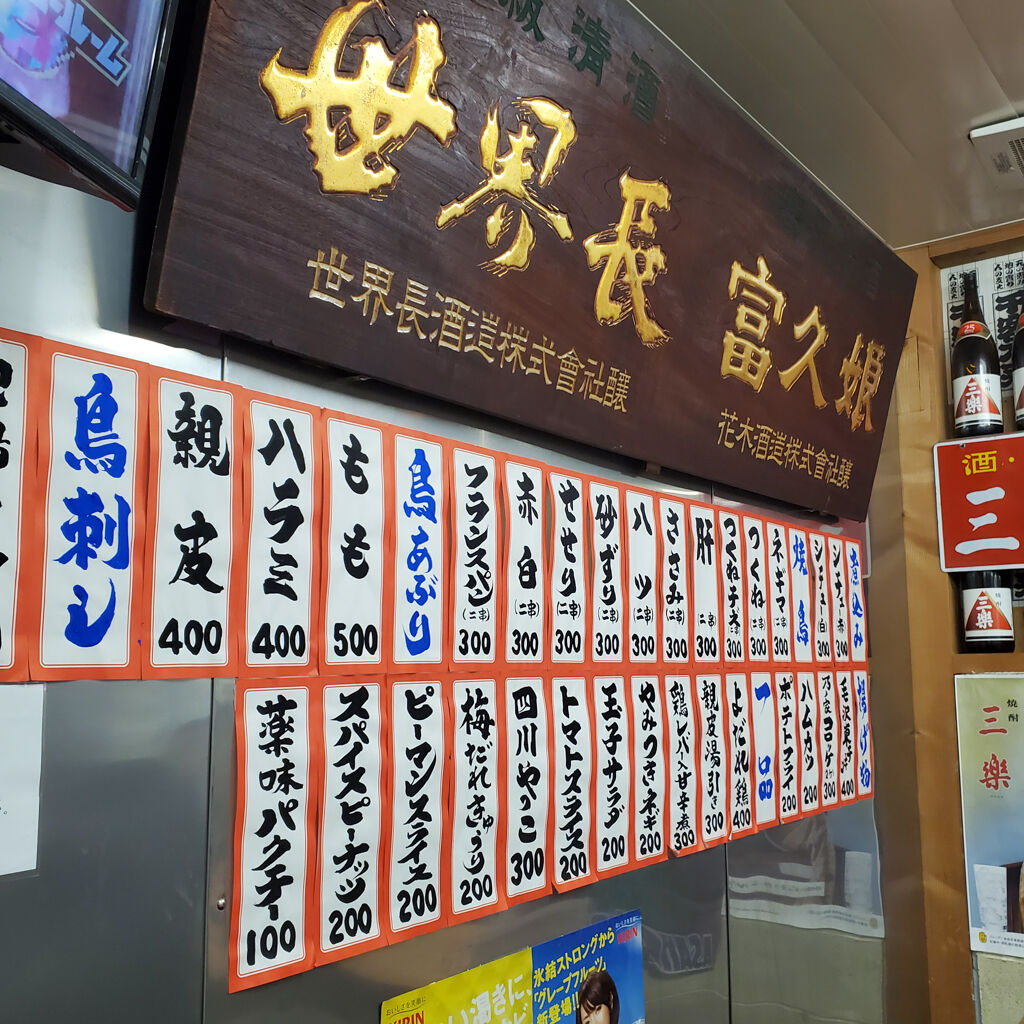 級清酒
世界長 富久娘
世界長酒造株式會社醸
花木酒造株式會社醸
煮込み
シチュー(赤) 300
シチュー(白) 300
焼鳥
ネギマ(二串) 300
つくね(二串) 300
つくねチーズ(二串) 300
肝(二串) 300
ささみ(二串) 300
ハツ(二串) 300
砂ずり(二串) 300
せせり(二串) 300
赤白(二串) 300
フランスパン(二串) 300
鳥あぶり
もも 500
ハラミ 400
親皮 400
鳥刺し
揚げ物
毛沢東 400
コロッケ 300
ハムカツ 200
ポテトフライ 200
一品
よだれ鶏 400
親皮湯引き 300
鶏レバー入甘辛煮 300
やみつきネギ 200
玉子サラダ 200
トマトスライス 200
四川やっこ 300
梅だれきゅうり 200
ピーマンスライス 200
スパイスピーナッツ 200
薬味パクチー 100
三樂
25
酒・
三
三樂
焼酎
三樂
おいしさを笑顔に
KIRIN
い渇きに、
おいしさを笑顔に
KIRIN
氷結ストロングから
「グレープフルーツ」
新登場!!